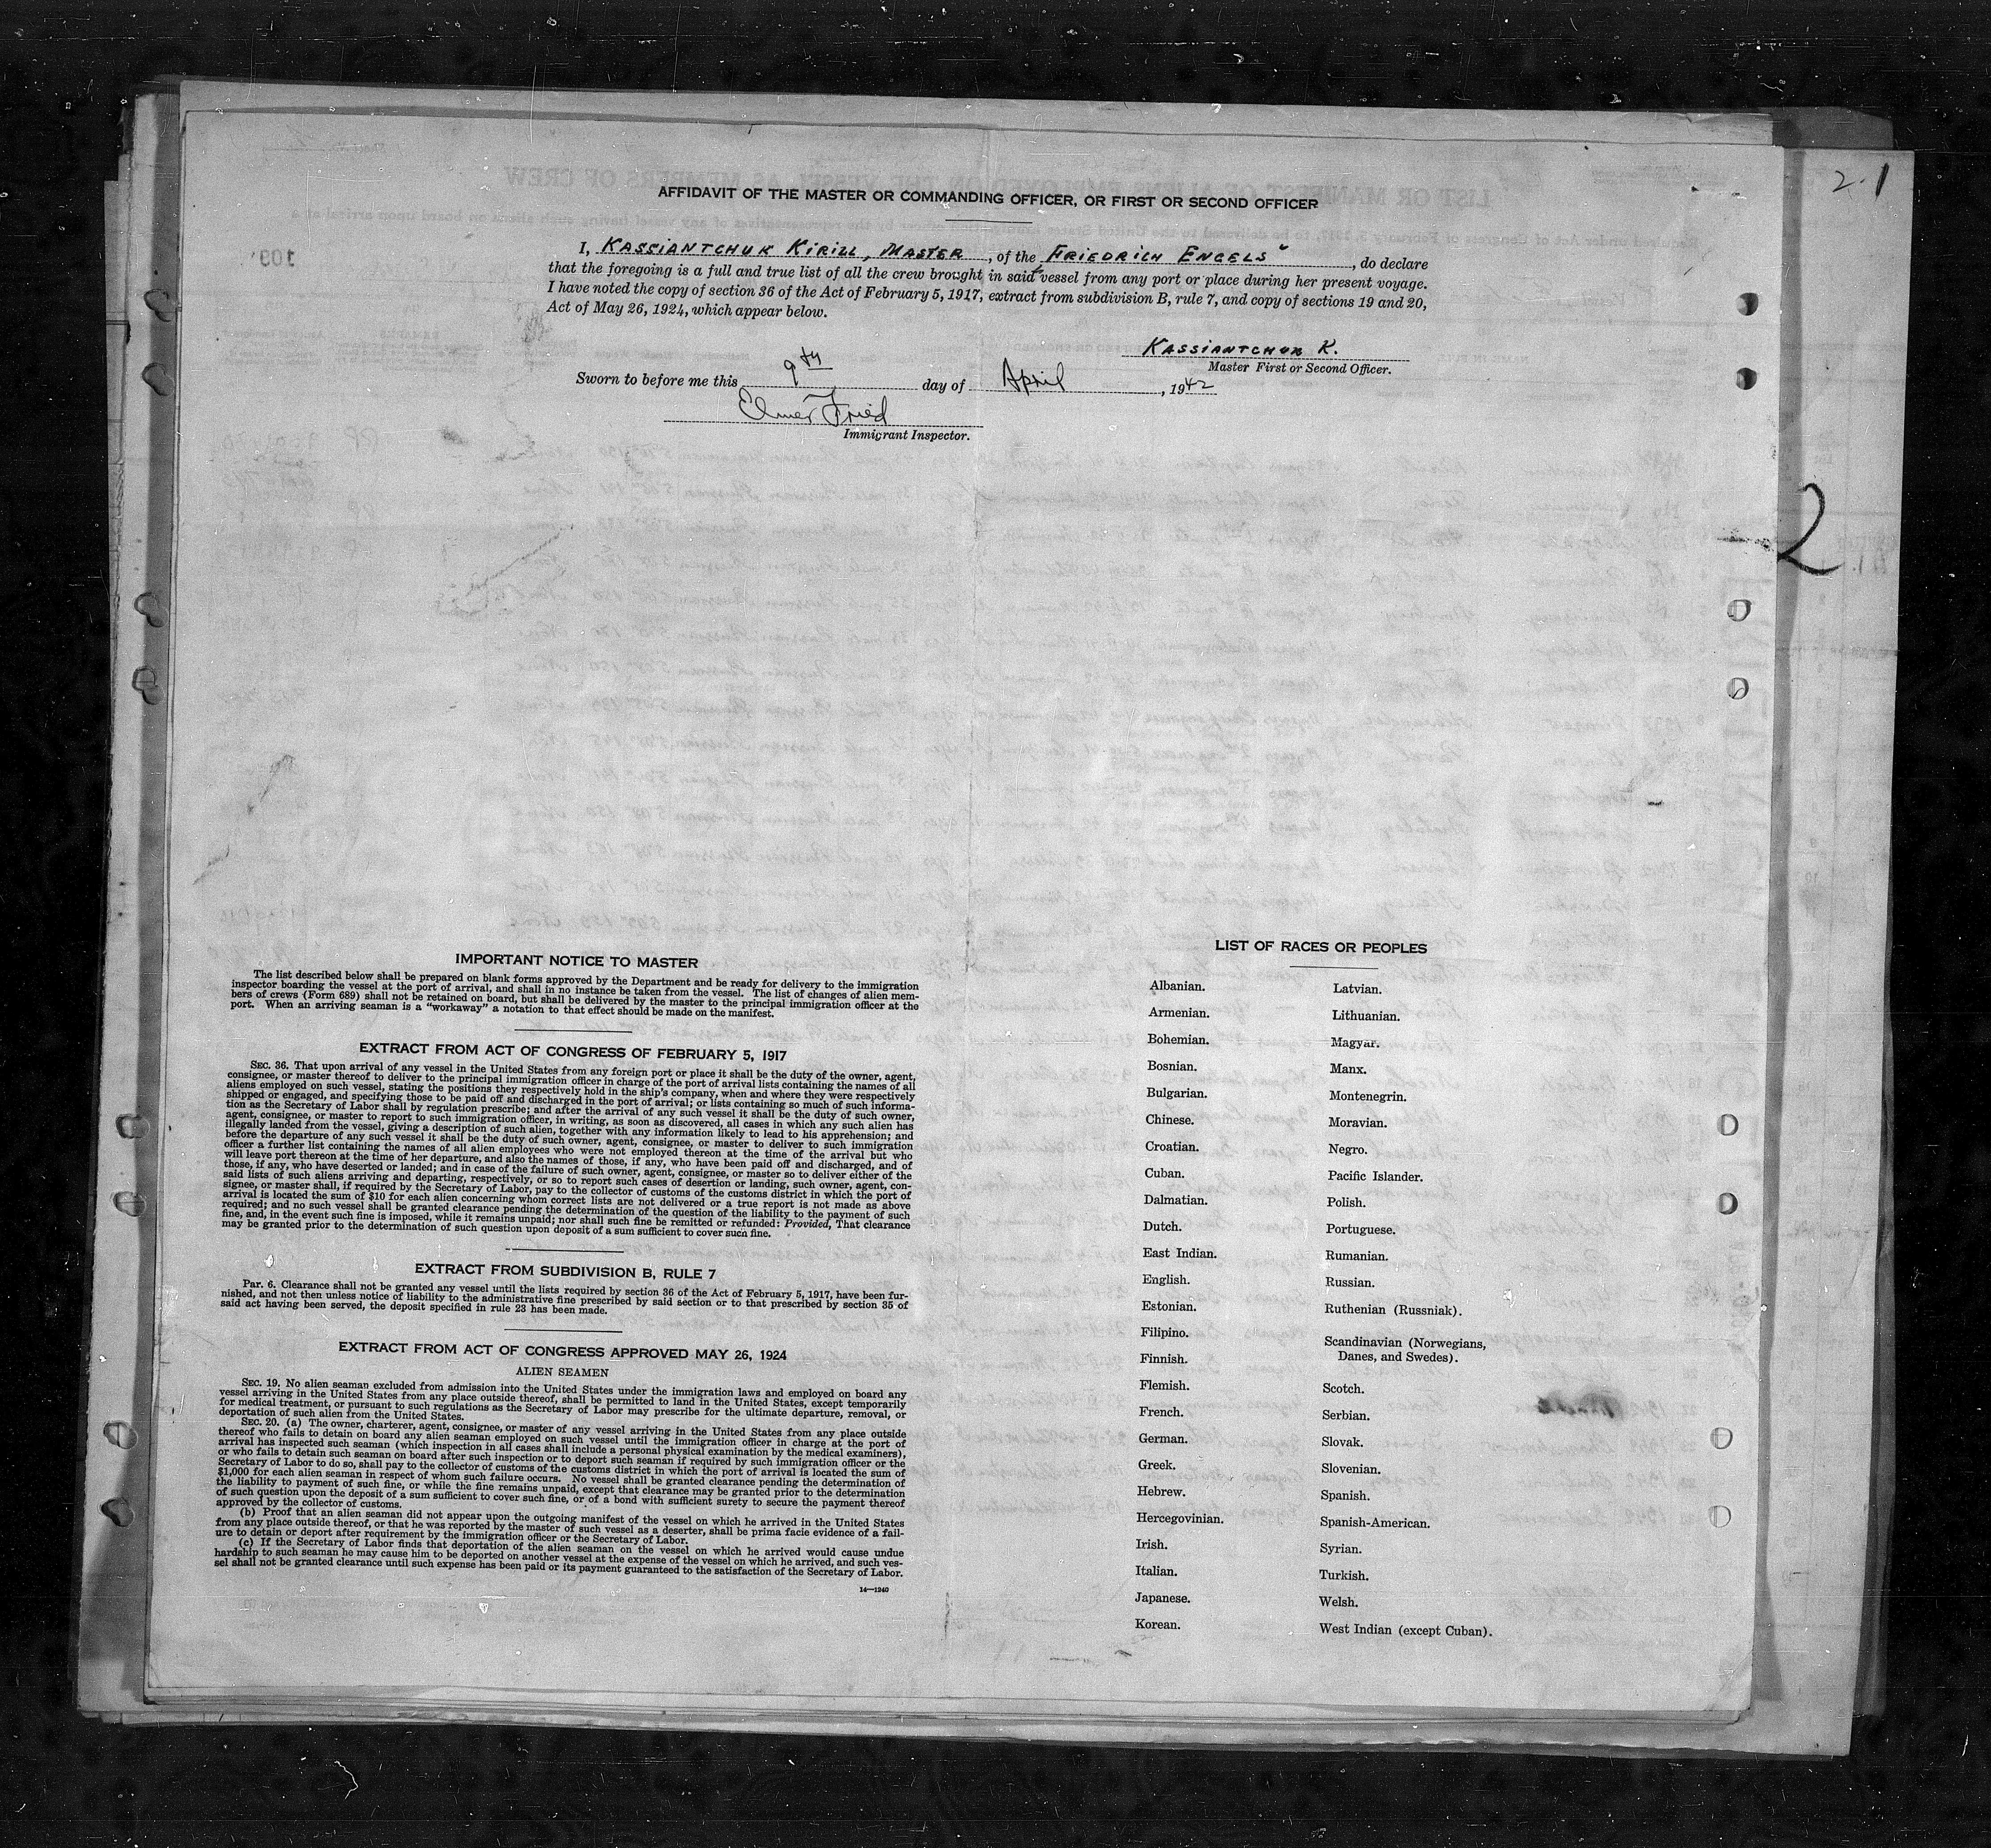 2-1
AFFIDAVIT OF THE MASTER OR COMMANDING OFFICER, OR FIRST OR SECOND OFFICER
I, KASSIANTCHUK KIRILL, MASTER, of the "FRIEDRICH ENGELS", do declare
that the foregoing is a full and true list of all the crew brought in said vessel from any port or place during her present voyage.
I have noted the copy of section 36 of the Act of February 5, 1917, extract from subdivision B, rule 7, and copy of sections 19 and 20,
Act of May 26, 1924, which appear below.
KASSIANTCHUK K.
Master First or Second Officer.
Sworn to before me this 9th day of April, 1942
Elmer Fried
Immigrant Inspector.
2
IMPORTANT NOTICE TO MASTER
The list described below shall be prepared on blank forms approved by the Department and be ready for delivery to the immigration
inspector boarding the vessel at the port of arrival, and shall in no instance be taken from the vessel. The list of changes of alien mem-
bers of crews (Form 689) shall not be retained on board, but shall be delivered by the master to the principal immigration officer at the
port. When an arriving seaman is a "workaway" a notation to that effect should be made on the manifest.
EXTRACT FROM ACT OF CONGRESS OF FEBRUARY 5, 1917
SEC. 36. That upon arrival of any vessel in the United States from any foreign port or place it shall be the duty of the owner, agent,
consignee, or master thereof to deliver to the principal immigration officer in charge of the port of arrival lists containing the names of all
aliens employed on such vessel, stating the positions they respectively hold in the ship's company, when and where they were respectively
shipped or engaged, and specifying those to be paid off and discharged in the port of arrival; or lists containing so much of such informa-
tion as the Secretary of Labor shall by regulation prescribe; and after the arrival of any such vessel it shall be the duty of such owner,
agent, consignee, or master to report to such immigration officer, in writing, as soon as discovered, all cases in which any such alien has
illegally landed from the vessel, giving a description of such alien, together with any information likely to lead to his apprehension; and
before the departure of any such vessel it shall be the duty of such owner, agent, consignee, or master to deliver to such immigration
officer a further list containing the names of all alien employees who were not employed thereon at the time of the arrival but who
will leave port thereon at the time of her departure, and also the names of those, if any, who have been paid off and discharged, and of
those, if any, who have deserted or landed; and in case of the failure of such owner, agent, consignee, or master so to deliver either of the
said lists of such aliens arriving and departing, respectively, or so to report such cases of desertion or landing, such owner, agent, con-
signee, or master shall, if required by the Secretary of Labor, pay to the collector of customs of the customs district in which the port of
arrival is located the sum of $10 for each alien concerning whom correct lists are not delivered or a true report is not made as above
required; and no such vessel shall be granted clearance pending the determination of the question of the liability to the payment of such
fine, and, in the event such fine is imposed, while it remains unpaid; nor shall such fine be remitted or refunded: Provided, That clearance
may be granted prior to the determination of such question upon deposit of a sum sufficient to cover such fine.
EXTRACT FROM SUBDIVISION B, RULE 7
Par. 6. Clearance shall not be granted any vessel until the lists required by section 36 of the Act of February 5, 1917, have been fur-
nished, and not then unless notice of liability to the administrative fine prescribed by said section or to that prescribed by section 35 of
said act having been served, the deposit specified in rule 23 has been made.
EXTRACT FROM ACT OF CONGRESS APPROVED MAY 26, 1924
ALIEN SEAMEN
SEC. 19. No alien seaman excluded from admission into the United States under the immigration laws and employed on board any
vessel arriving in the United States from any place outside thereof, shall be permitted to land in the United States, except temporarily
for medical treatment, or pursuant to such regulations as the Secretary of Labor may prescribe for the ultimate departure, removal, or
deportation of such alien from the United States.
SEC. 20. (a) The owner, charterer, agent, consignee, or master of any vessel arriving in the United States from any place outside
thereof who fails to detain on board any alien seaman employed on such vessel until the immigration officer in charge at the port of
arrival has inspected such seaman (which inspection in all cases shall include a personal physical examination by the medical examiners),
or who fails to detain such seaman on board after such inspection or to deport such seaman if required by such immigration officer or the
Secretary of Labor to do so, shall pay to the collector of customs of the customs district in which the port of arrival is located the sum of
$1,000 for each alien seaman in respect of whom such failure occurs. No vessel shall be granted clearance pending the determination of
the liability to payment of such fine, or while the fine remains unpaid, except that clearance may be granted prior to the determination
of such question upon the deposit of a sum sufficient to cover such fine, or of a bond with sufficient surety to secure the payment thereof
approved by the collector of customs.
(b) Proof that an alien seaman did not appear upon the outgoing manifest of the vessel on which he arrived in the United States
from any place outside thereof, or that he was reported by the master of such vessel as a deserter, shall be prima facie evidence of a fail-
ure to detain or deport after requirement by the immigration officer or the Secretary of Labor.
(c) If the Secretary of Labor finds that deportation of the alien seaman on the vessel on which he arrived would cause undue
hardship to such seaman he may cause him to be deported on another vessel at the expense of the vessel on which he arrived, and such ves-
sel shall not be granted clearance until such expense has been paid or its payment guaranteed to the satisfaction of the Secretary of Labor.
14—1240
LIST OF RACES OR PEOPLES
Albanian.
Armenian.
Bohemian.
Bosnian.
Bulgarian.
Chinese.
Croatian.
Cuban.
Dalmatian.
Dutch.
East Indian.
English.
Estonian.
Filipino.
Finnish.
Flemish.
French.
German.
Greek.
Hebrew.
Hercegovinian.
Irish.
Italian.
Japanese.
Korean.
Latvian.
Lithuanian.
Magyar.
Manx.
Montenegrin.
Moravian.
Negro.
Pacific Islander.
Polish.
Portuguese.
Rumanian.
Russian.
Ruthenian (Russniak).
Scandinavian (Norwegians,
Danes, and Swedes).
Scotch.
Serbian.
Slovak.
Slovenian.
Spanish.
Spanish-American.
Syrian.
Turkish.
Welsh.
West Indian (except Cuban).